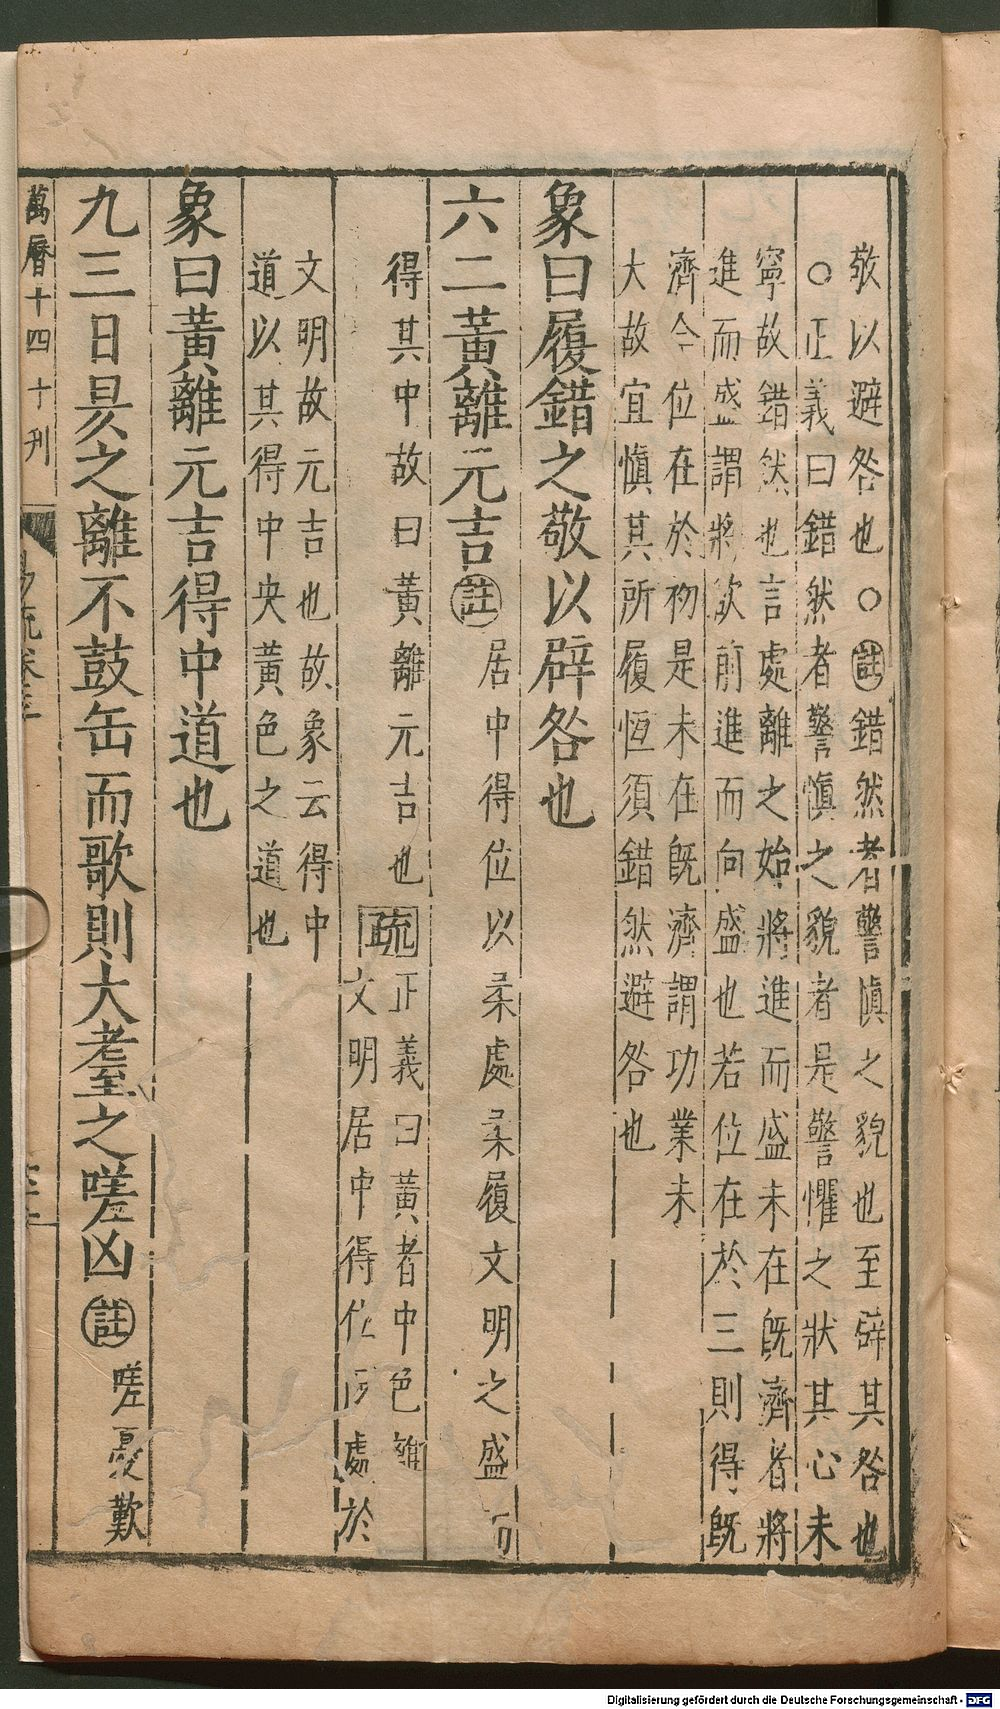 敬以避咎也○註錯然者警愼之貌也至辟其咎也
○正義曰錯然者警愼之貌者是警懼之狀其心未
寧故錯然也言處離之始將進而盛未在既濟者將
進而盛謂將欲前進而向盛也若位在於三則得既
濟今位在於初是未在既濟謂功業未
大故宜愼其所履恒須錯然避咎也
象曰履錯之敬以辟咎也
六二黃離元吉註居中得位以柔處柔履文明之盛而
得其中故曰黃離元吉也疏正義曰黃者中色離
文明居中得位而處於
文明故元吉也故象云得中
道以其得中央黃色之道也
象曰黃離元吉得中道也
九三日昃之離不鼓缶而歌則大耋之嗟凶註嗟憂歎
萬曆十四年刊
易疏卷三
Digitalisierung gefördert durch die Deutsche Forschungsgemeinschaft - DFG